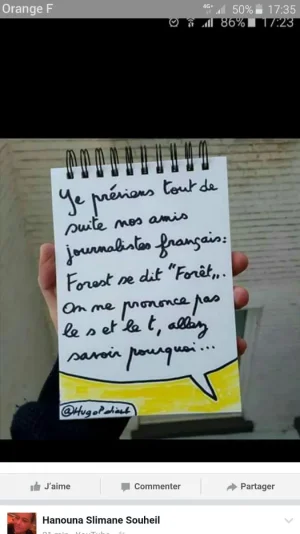 Orange F
4G 50% 17:35
86% 17:23
Je préviens tout de
suite nos amis
journalistes français:
Forest se dit "Forêt„.
On ne prononce pas
le s et le t, allez
savoir pourquoi...
J'aime
Commenter
Partager
Hanouna Slimane Souheil